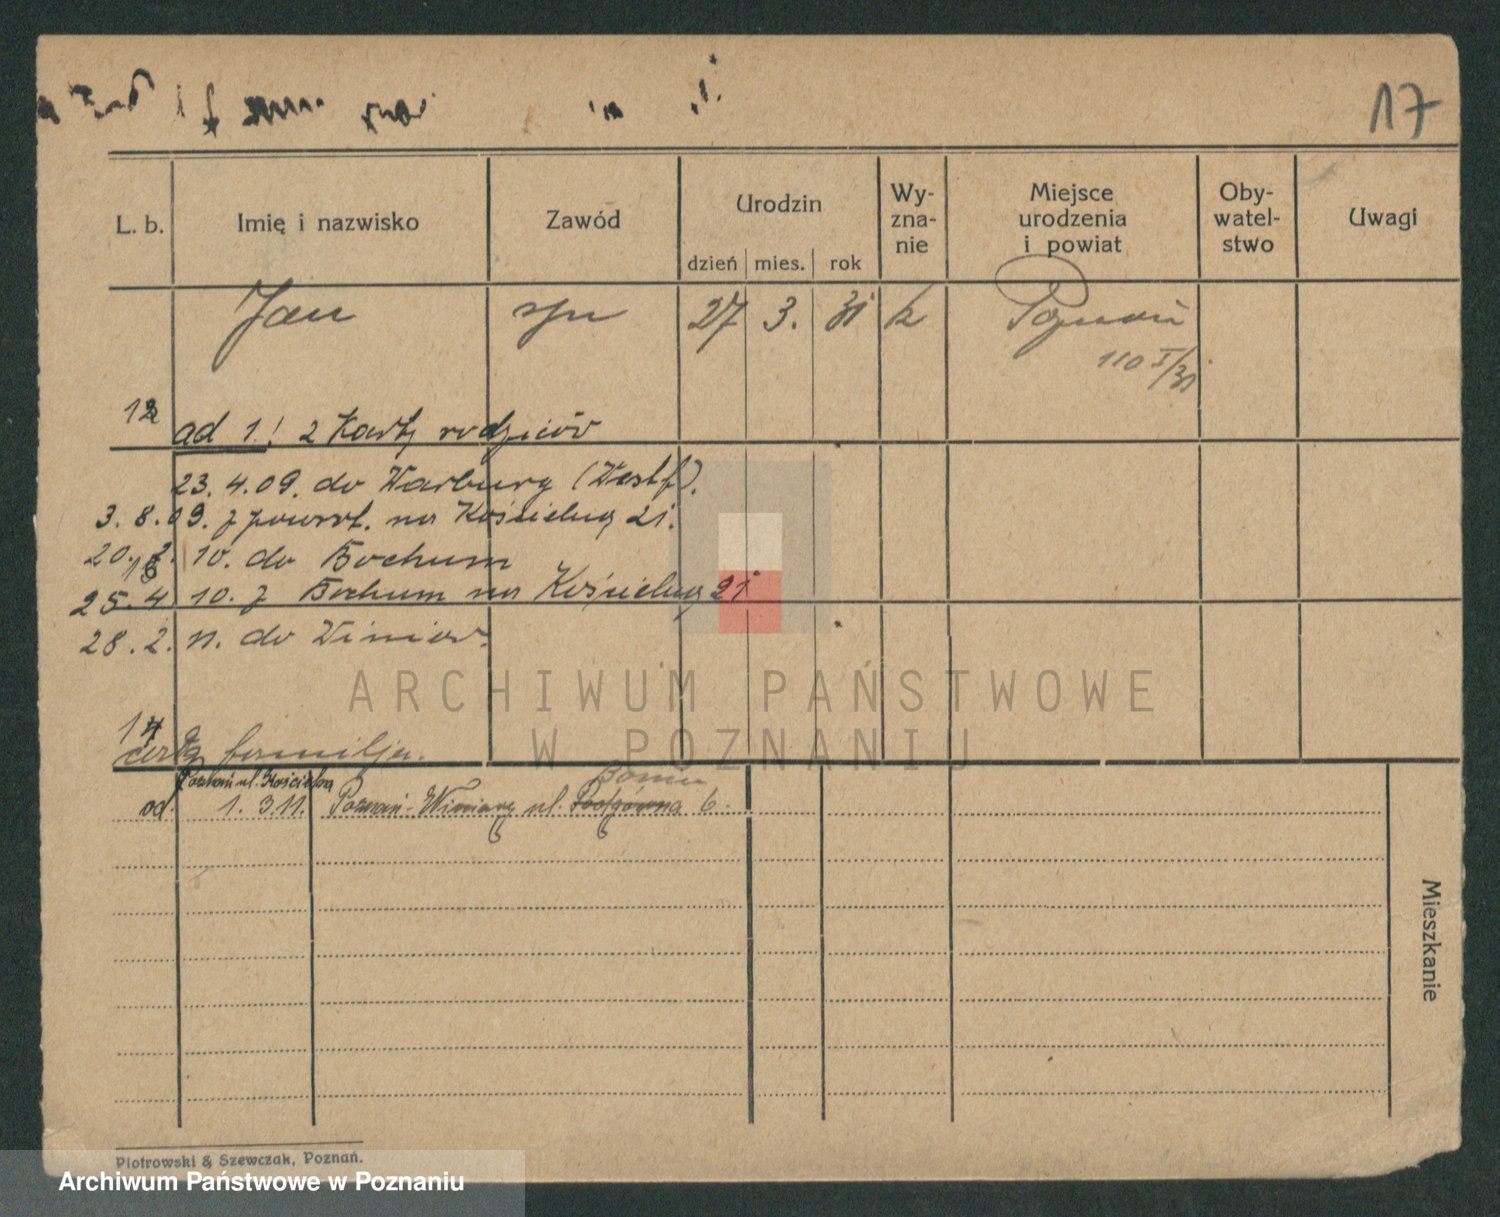 17
L. b.
Imię i nazwisko
Zawód
Urodzin
dzień
mies.
rok
Wy-
zna-
nie
Miejsce
urodzenia
i powiat
Oby-
watel-
stwo
Uwagi
Jan syn 27 3. 31 k Poznań
110 I/31
12
ad 1.! 2 Karty rodziców
23. 4. 09. do Warburg (Westf).
3. 8. 09. z powrt. na Kościelną 21.
20. 10. do Bochum
25. 4 10. z Bochum na Kościelną 21
28. 2. 11. do Winiar.
14
całą familją.
Poznań ul. Kościelna
od 1. 3.11. Poznań-Winiary ul. Podgórna 6.
Mieszkanie
Piotrowski & Szewczak, Poznań.
ARCHIWUM PAŃSTWOWE
W POZNANIU
Archiwum Państwowe w Poznaniu